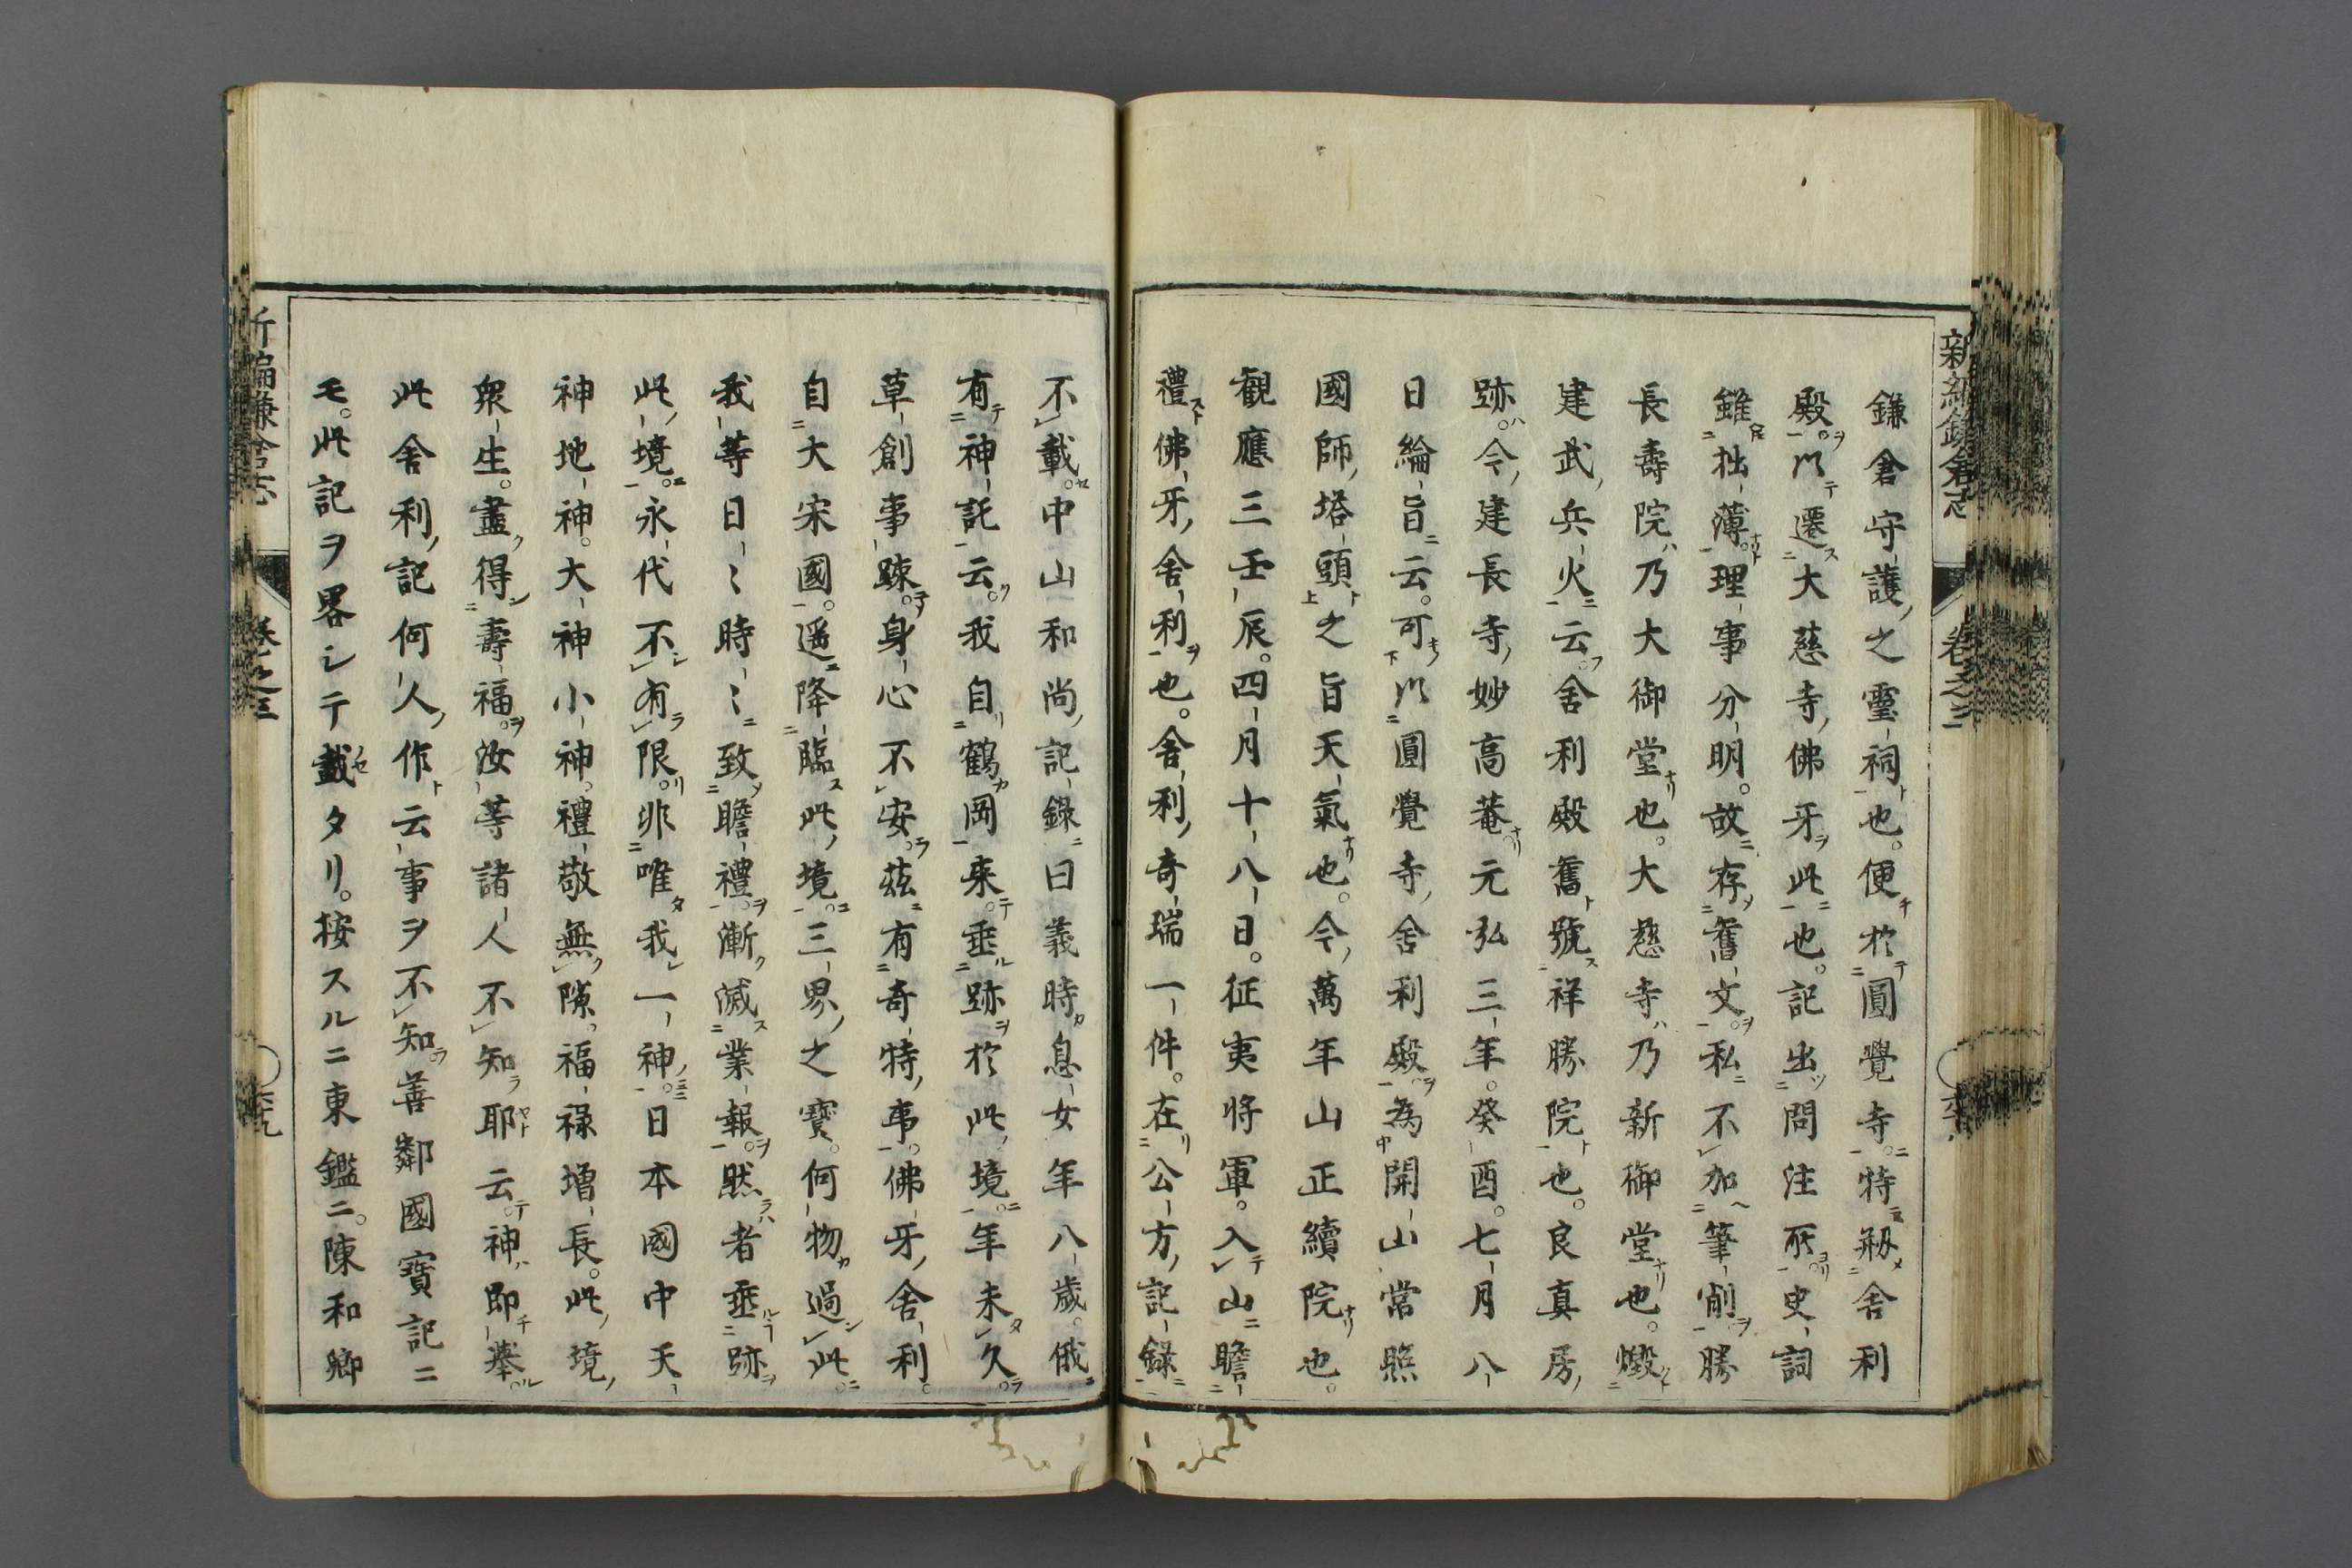 新編鎌倉志 卷之三
鎌倉守護之靈祠也。便於圓覺寺。特剏舍利
殿。以遷大慈寺佛牙此也。記出問注所史詞
雖拙薄。理事分明。故存舊文。私不加筆削勝
長壽院乃大御堂也。大慈寺乃新御堂也。燬
建武兵火云。舍利殿舊號祥勝院也。良真房
跡。今建長寺妙高菴元弘三年。癸酉。七月八
日綸旨云。可以圓覺寺舍利殿。為開山常照
國師塔頭之旨天氣也。今萬年山正續院也。
觀應三壬辰。四月十八日。征夷将軍。入山瞻
禮佛牙舍利也。舍利奇瑞一件。在公方記錄
不載。中山和尚記錄曰義時息女年八歲。俄
有神託云。我自鶴岡来。垂跡於此境。年未久。
草創事踈。身心不安。茲有奇特事。佛牙舍利。
自大宋國。遥降臨此境。三界之寶。何物過此。
我等日〻時〻致瞻禮。漸滅業報。然者垂跡
此境。永代不有限。非唯我一神。日本國中天
神地神。大神小神。禮敬無隙。福禄増長。此境
衆生。盡得壽福。汝等諸人不知耶云。神即擧。
此舍利記何人作云事ヲ不知善鄰國寶記ニ
モ。此記ヲ畧シテ載タリ。按スルニ東鑑ニ。陳和卿
新編鎌倉志 卷之三